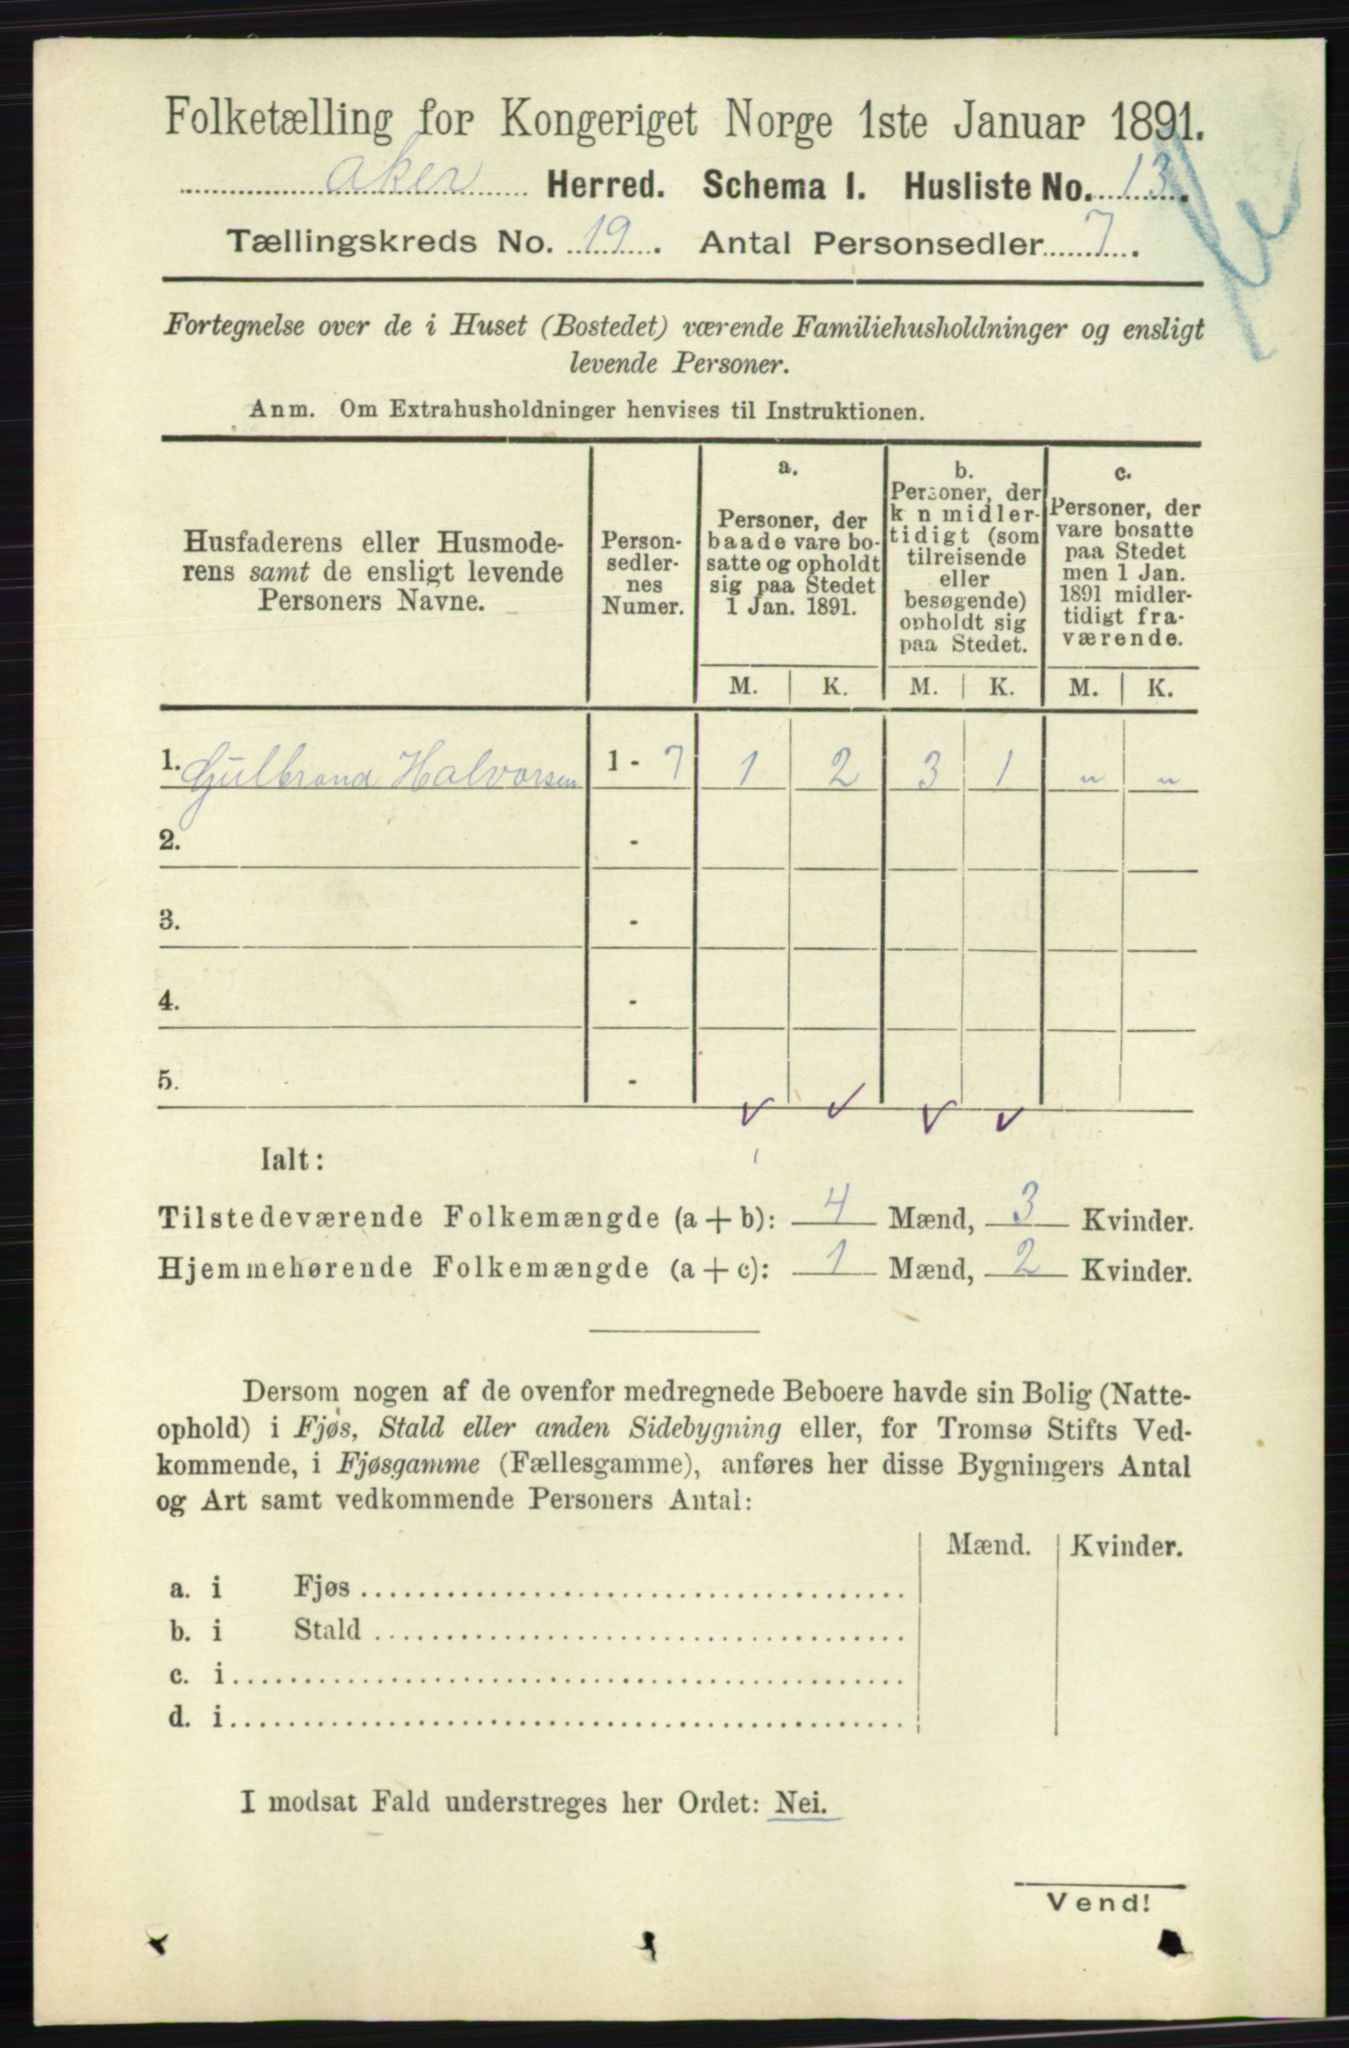 Folketælling for Kongeriget Norge 1ste Januar 1891.
Aker Herred. Schema I. Husliste No. 13.
Tællingskreds No. 19. Antal Personsedler 7.
Fortegnelse over de i Huset (Bostedet) værende Familiehusholdninger og ensligt
levende Personer.
Anm. Om Extrahusholdninger henvises til Instruktionen.
Husfaderens eller Husmode-
rens samt de ensligt levende
Personers Navne.
Person-
sedler-
nes
Numer.
a.
Personer, der
baade vare bo-
satte og opholdt
sig paa Stedet
1 Jan. 1891.
b.
Personer, der
k n midler-
tidigt (som
tilreisende
eller
besøgende)
opholdt sig
paa Stedet.
c.
Personer, der
vare bosatte
paa Stedet
men 1 Jan.
1891 midler-
tidigt fra-
værende.
M. K. M. K. M. K.
1. Gulbrand Halvorsen 1 - 7 1 2 3 1 " "
2. -
3. -
4. -
5. -
Ialt:
Tilstedeværende Folkemængde (a + b): 4 Mænd, 3 Kvinder.
Hjemmehørende Folkemængde (a + c): 1 Mænd, 2 Kvinder.
Dersom nogen af de ovenfor medregnede Beboere havde sin Bolig (Natte-
ophold) i Fjøs, Stald eller anden Sidebygning eller, for Tromsø Stifts Ved-
kommende, i Fjøsgamme (Fællesgamme), anføres her disse Bygningers Antal
og Art samt vedkommende Personers Antal:
Mænd. Kvinder.
a. i Fjøs
b. i Stald
c. i
d. i
I modsat Fald understreges her Ordet: Nei.
Vend!